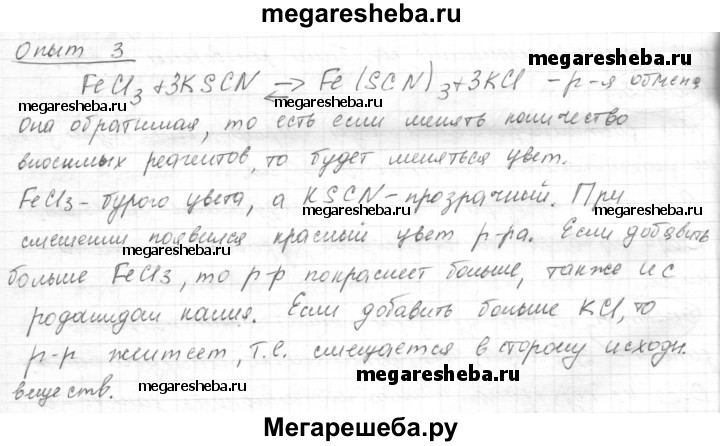 megaresheba.ru
Опыт 3
megaresheba.ru
FeCl3+3KSCN ⇄ Fe(SCN)3+3KCl - р-я обмена
megaresheba.ru megaresheba.ru
Она обратимая, то есть если менять количество
вносимых реагентов, то будет меняться цвет.
megaresheba.ru
FeCl3-бурого цвета, а KSCN-прозрачный. При
megaresheba.ru
смешении появился красный цвет р-ра. Если добавить
больше FeCl3, то р-р покраснеет больше, также и с
роданидом калия. Если добавить больше KCl, то
р-р желтеет, т.е. смещается в сторону исходн.
веществ.
megaresheba.ru megaresheba.ru
Мегарешеба.ру